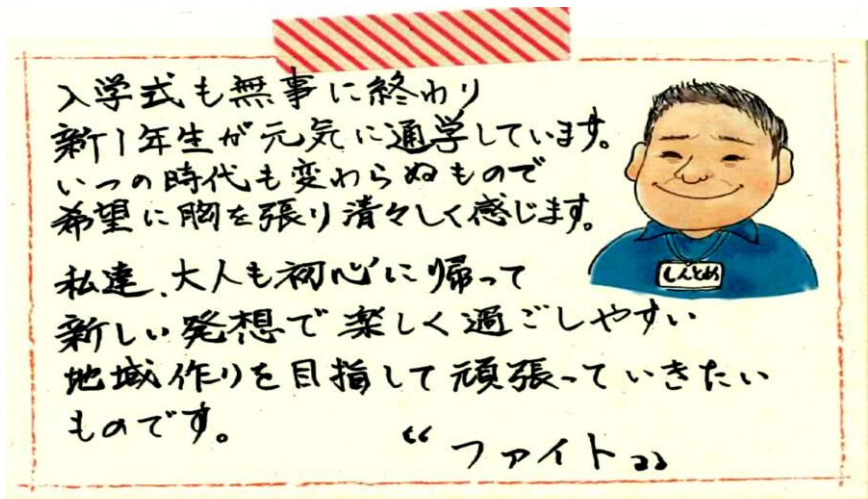 入学式も無事に終わり
新1年生が元気に通学しています。
いつの時代も変わらぬもので
希望に胸を張り清々しく感じます。
私達、大人も初心に帰って
新しい発想で楽しく過ごしやすい
地域作りを目指して頑張っていきたい
ものです。
“ファイト„
しんとめ